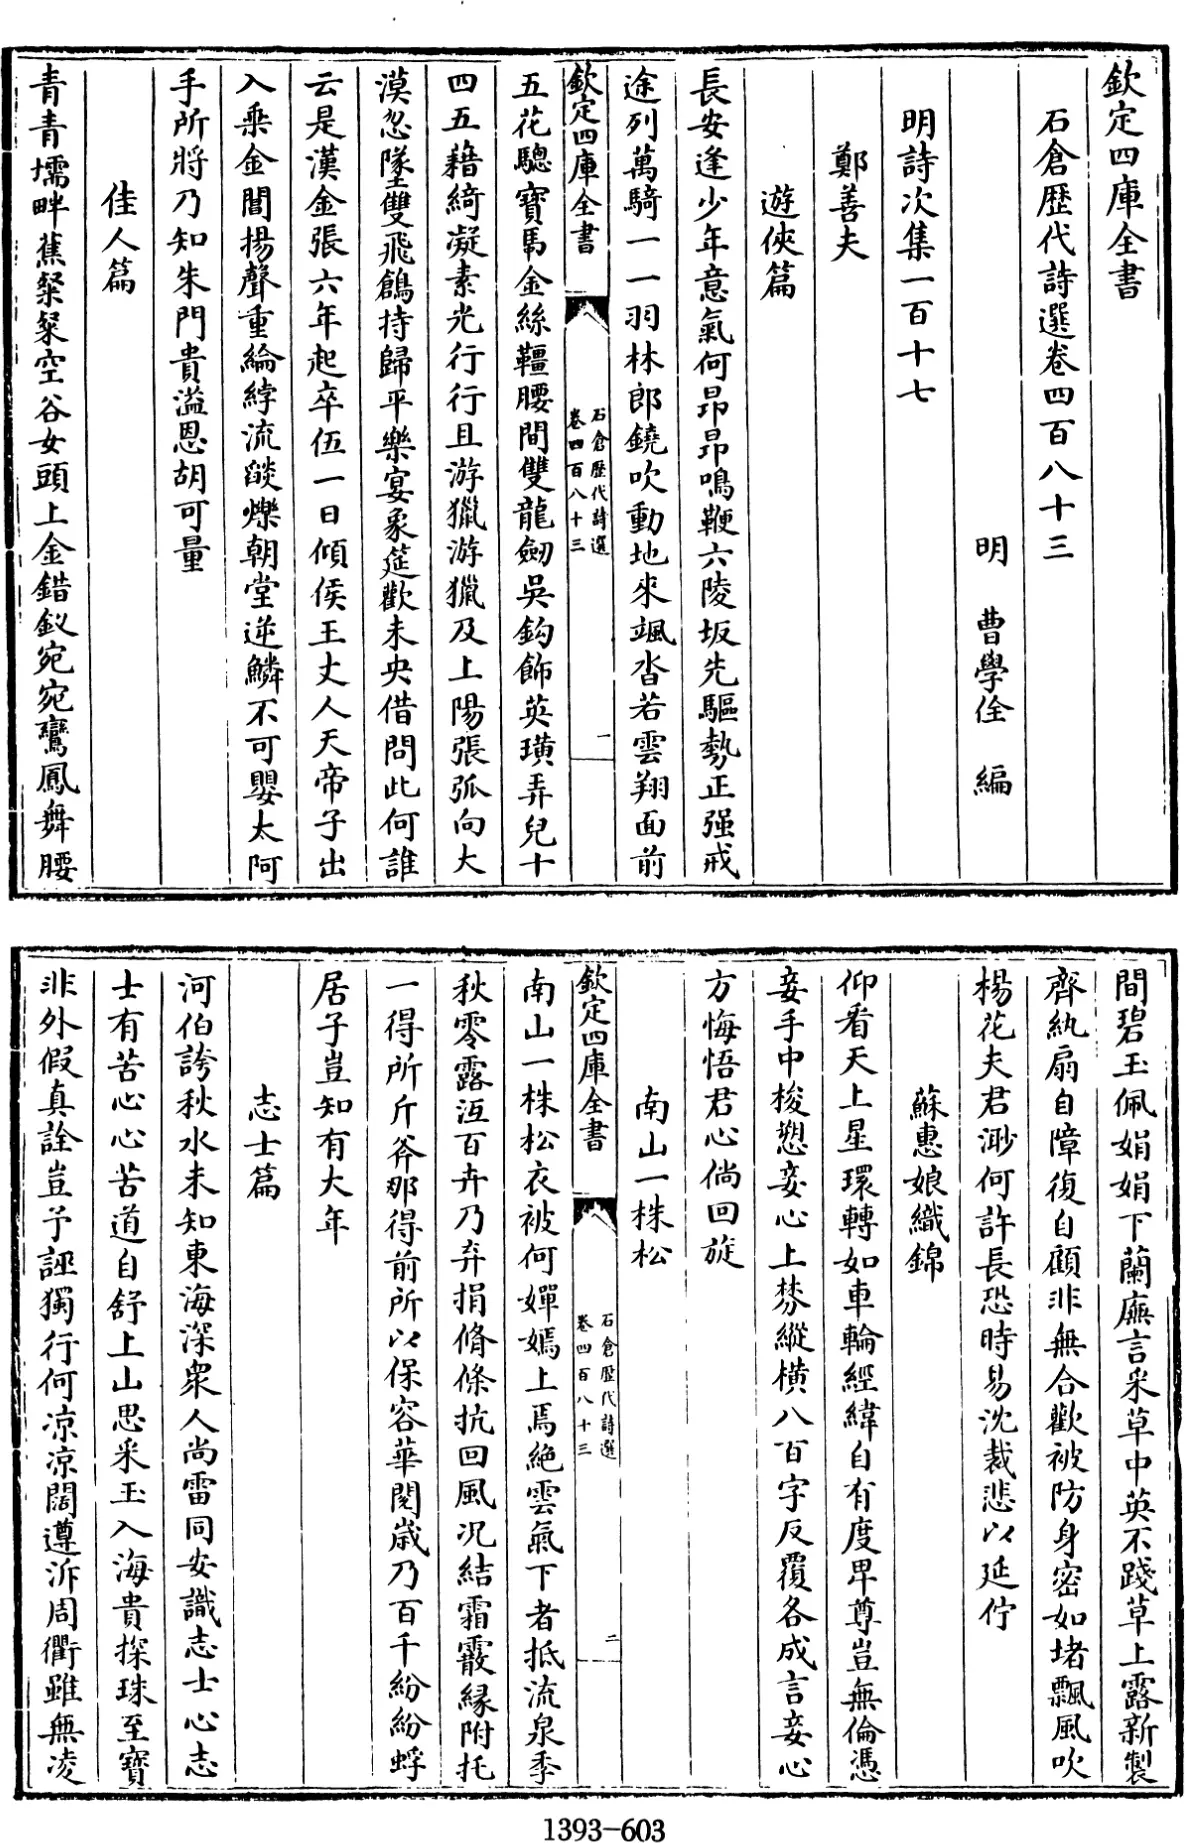 欽定四庫全書
石倉歷代詩選卷四百八十三
明 曹學佺 編
明詩次集一百十七
鄭善夫
遊俠篇
長安逢少年意氣何昂昂鳴鞭六陵坂先驅勢正强戒
途列萬騎一一羽林郎鐃吹動地來颯沓若雲翔面前
欽定四庫全書
石倉歷代詩選
卷四百八十三
一
五花驄寶馬金絲韁腰間雙龍劒吳鈎飾英璜弄兒十
四五藉綺凝素光行行且游獵游獵及上陽張弧向大
漠忽墜雙飛鶬持歸平樂宴象筵歡未央借問此何誰
云是漢金張六年起卒伍一日傾侯王丈人天帝子出
入乘金閶揚聲重綸綍流燄爍朝堂逆鱗不可嬰太阿
手所將乃知朱門貴溢恩胡可量
佳人篇
青青壖畔蕉粲粲空谷女頭上金錯釵宛宛鸞鳳舞腰
間碧玉佩娟娟下蘭廡言采草中英不踐草上露新製
齊紈扇自障復自顧非無合歡被防身密如堵飄風吹
楊花夫君渺何許長恐時易沈裁悲以延佇
蘇惠娘織錦
仰看天上星環轉如車輪經緯自有度卑尊豈無倫憑
妾手中梭愬妾心上棼縱橫八百字反覆各成言妾心
方悔悟君心倘回旋
南山一株松
欽定四庫全書
石倉歷代詩選
卷四百八十三
二
南山一株松衣被何嬋嫣上焉絶雲氣下者抵流泉季
秋零露沍百卉乃弃捐脩條抗回風况結霜霰縁附托
一得所斤斧那得前所以保容華閲歲乃百千紛紛蜉
居子豈知有大年
志士篇
河伯誇秋水未知東海深衆人尚雷同安識志士心志
士有苦心心苦道自舒上山思采玉入海貴探珠至寶
非外假真詮豈予誣獨行何凉凉闊遵泝周衢雖無凌
1393-603